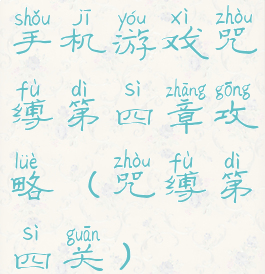 shǒu jī yóu xì zhòu
手机游戏咒
fù dì sì zhāng gōng
缚第四章攻
lüè zhòu fù dì
略（咒缚第
sì guān
四关）